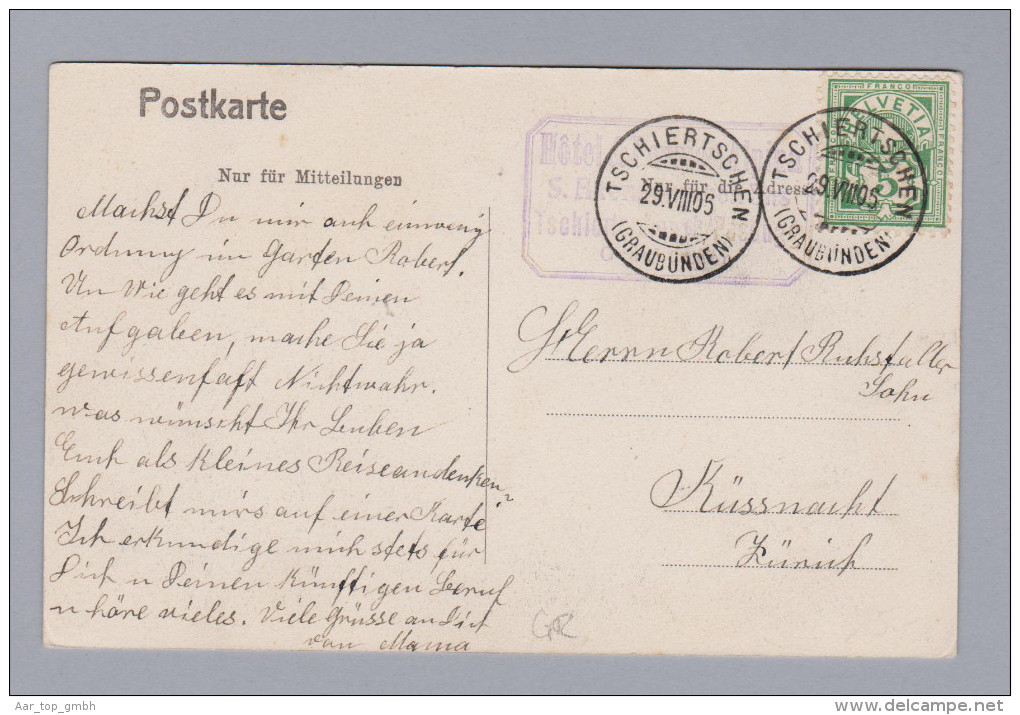 Postkarte
Nur für Mitteilungen
Nur für die Adresse
Hôtel
TSCHIERTSCHEN
29.VIII.05
(GRAUBÜNDEN)
TSCHIERTSCHEN
29.VIII.05
(GRAUBÜNDEN)
FRANCO
HELVETIA
FRANCO
5
Machst Du mir auch einwenig
Ordnung im Garten Robert.
Un Wie geht es mit Deinen
Aufgaben, mache Sie ja
gewissenhaft Nichtwahr.
was wünscht Ihr Buben
Euch als kleines Reiseandenken?
Schreibt mirs auf einer Karte
Ich erkundige mich stets für
Dich u Deinen künftigen Beruf
u höre vieles. Viele Grüsse an Dich
von Mama
Herrn Robert Ruhstaller
Sohn
Küssnacht
Zürich
GR
Aar_top_gmbh